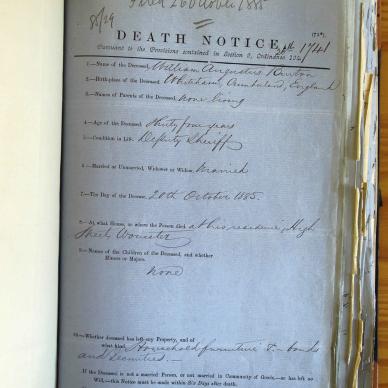 Filed 26 October 1885
85/29
DEATH NOTICE,
1741
Pursuant to the Provisions contained in Section 9, Ordinance 104
1.—Name of the Deceased, William Augustus
2.—Birth-place of the Deceased, Whitehaven, Cumberland, England
3.—Names of Parents of the Deceased, none living
4.—Age of the Deceased, Thirty four years
5.—Condition in Life, Deputy Sheriff
6.—Married or Unmarried, Widower or Widow, Married
7.—The Day of the Decease, 20th October 1885.
8.—At what House, or where the Person died, at his residence, High
Street Worcester
9.—Names of the Children of the Deceased, and whether
Minors or Majors.
None
10.—Whether deceased has left any Property, and of
what kind, Household furniture & bonds
and securities.—
If the Deceased is not a married Person, or not married in Community of Goods, or has left no
Will,—this Notice must be made within Six Days after death.